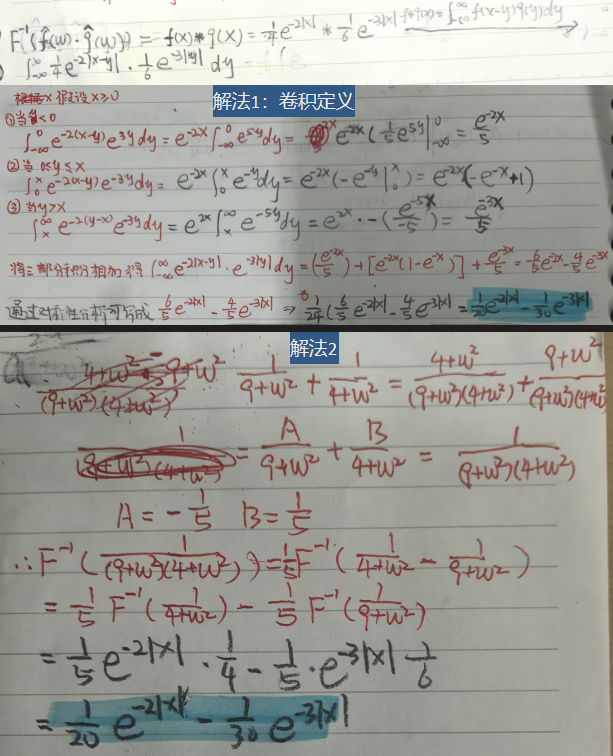 F⁻¹(f̂(w)·ĝ(w)) = f(x)*g(x) = 1/4 e^{-2|x|} * 1/6 e^{-3|x|} f*g(x) = ∫_{-∞}^{∞} f(x-y)g(y)dy
∫_{-∞}^{∞} 1/4 e^{-2|x-y|} · 1/6 e^{-3|y|} dy
解法1：卷积定义
假设x≥0
①当y<0
∫_{-∞}^{0} e^{-2(x-y)} e^{3y} dy = e^{-2x} ∫_{-∞}^{0} e^{5y} dy = e^{-2x} (1/5 e^{5y} |_{-∞}^{0} = e^{-2x}/5
(2) 当 0≤y≤x
∫_{0}^{x} e^{-2(x-y)} e^{-3y} dy = e^{-2x} ∫_{0}^{x} e^{-y} dy = e^{-2x} (-e^{-y} |_{0}^{x}) = e^{-2x} (-e^{-x}+1)
(3) 当y>x
∫_{x}^{∞} e^{-2(y-x)} e^{-3y} dy = e^{2x} ∫_{x}^{∞} e^{-5y} dy = e^{2x} · -(e^{-5x}/-5) = e^{-3x}/5
将三部分积分相加得 ∫_{-∞}^{∞} e^{-2|x-y|} · e^{-3|y|} dy = (e^{-2x}/5) + [e^{-2x}(1-e^{-x})] + e^{-3x}/5 = 6/5 e^{-2x} - 4/5 e^{-3x}
通过对称性分析可写成 6/5 e^{-2|x|} - 4/5 e^{-3|x|} ⇒ 1/24 (6/5 e^{-2|x|} - 4/5 e^{-3|x|} = 1/20 e^{-2|x|} - 1/30 e^{-3|x|}
解法2
1/(9+w²) + 1/(4+w²) = (4+w²)/((9+w²)(4+w²)) + (9+w²)/((9+w²)(4+w²)
= A/(9+w²) + B/(4+w²) = 1/((9+w²)(4+w²))
A = -1/5 B = 1/5
∴ F⁻¹(1/((9+w²)(4+w²))) = 1/5 F⁻¹(1/(4+w²) - 1/(9+w²))
= 1/5 F⁻¹(1/(4+w²)) - 1/5 F⁻¹(1/(9+w²))
= 1/5 e^{-2|x|} · 1/4 - 1/5 · e^{-3|x|} 1/6
= 1/20 e^{-2|x|} - 1/30 e^{-3|x|}